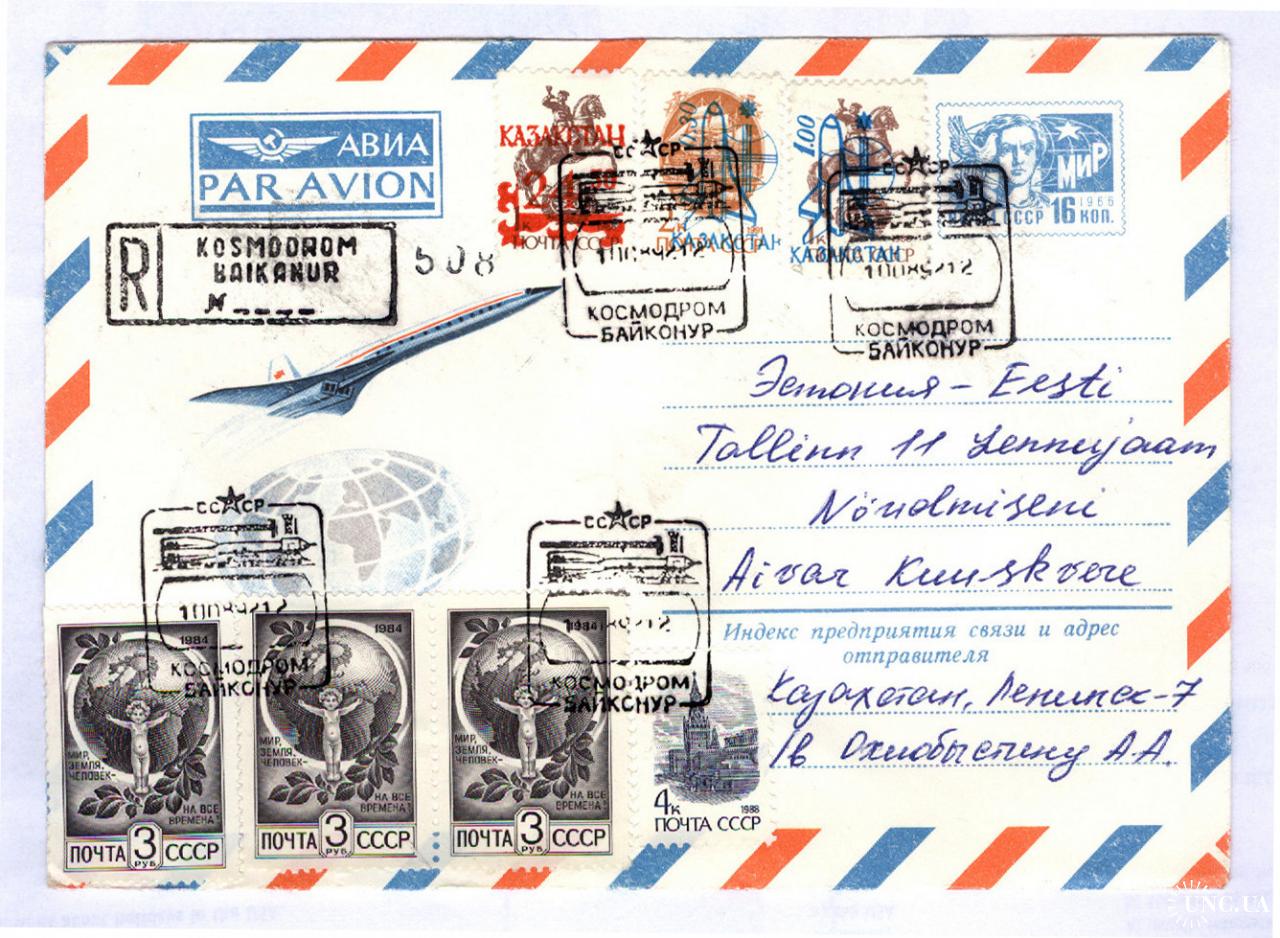 АВИА
PAR AVION
R KOSMODROM
BAIKANUR
N
508
КАЗАКСТАН
24 50
1к
ПОЧТА СССР
1.30
2к 1991
ПОЧТА СССР
КАЗАКСТАН
1.00
1к
ПОЧТА СССР
КАЗАКСТАН
МИР
1966
СССР 16 КОП.
СССР
10089212
КОСМОДРОМ
БАЙКОНУР
СССР
10089212
КОСМОДРОМ
БАЙКОНУР
Эстония - Eesti
Tallinn 11 Lennujaam
Aivar Kuuskvere
Индекс предприятия связи и адрес
отправителя
Казахстан, Ленинск-7
А.А.
СССР
10089212
КОСМОДРОМ
БАЙКОНУР
СССР
КОСМОДРОМ
БАЙКОНУР
1984
МИР,
ЗЕМЛЯ,
ЧЕЛОВЕК-
НА ВСЕ
ВРЕМЕНА!
ПОЧТА 3 РУБ СССР
1984
МИР,
ЗЕМЛЯ,
ЧЕЛОВЕК-
НА ВСЕ
ВРЕМЕНА!
ПОЧТА 3 РУБ СССР
1984
МИР,
ЗЕМЛЯ,
ЧЕЛОВЕК-
НА ВСЕ
ВРЕМЕНА!
ПОЧТА 3 РУБ СССР
4к 1988
ПОЧТА СССР
UNC.UA